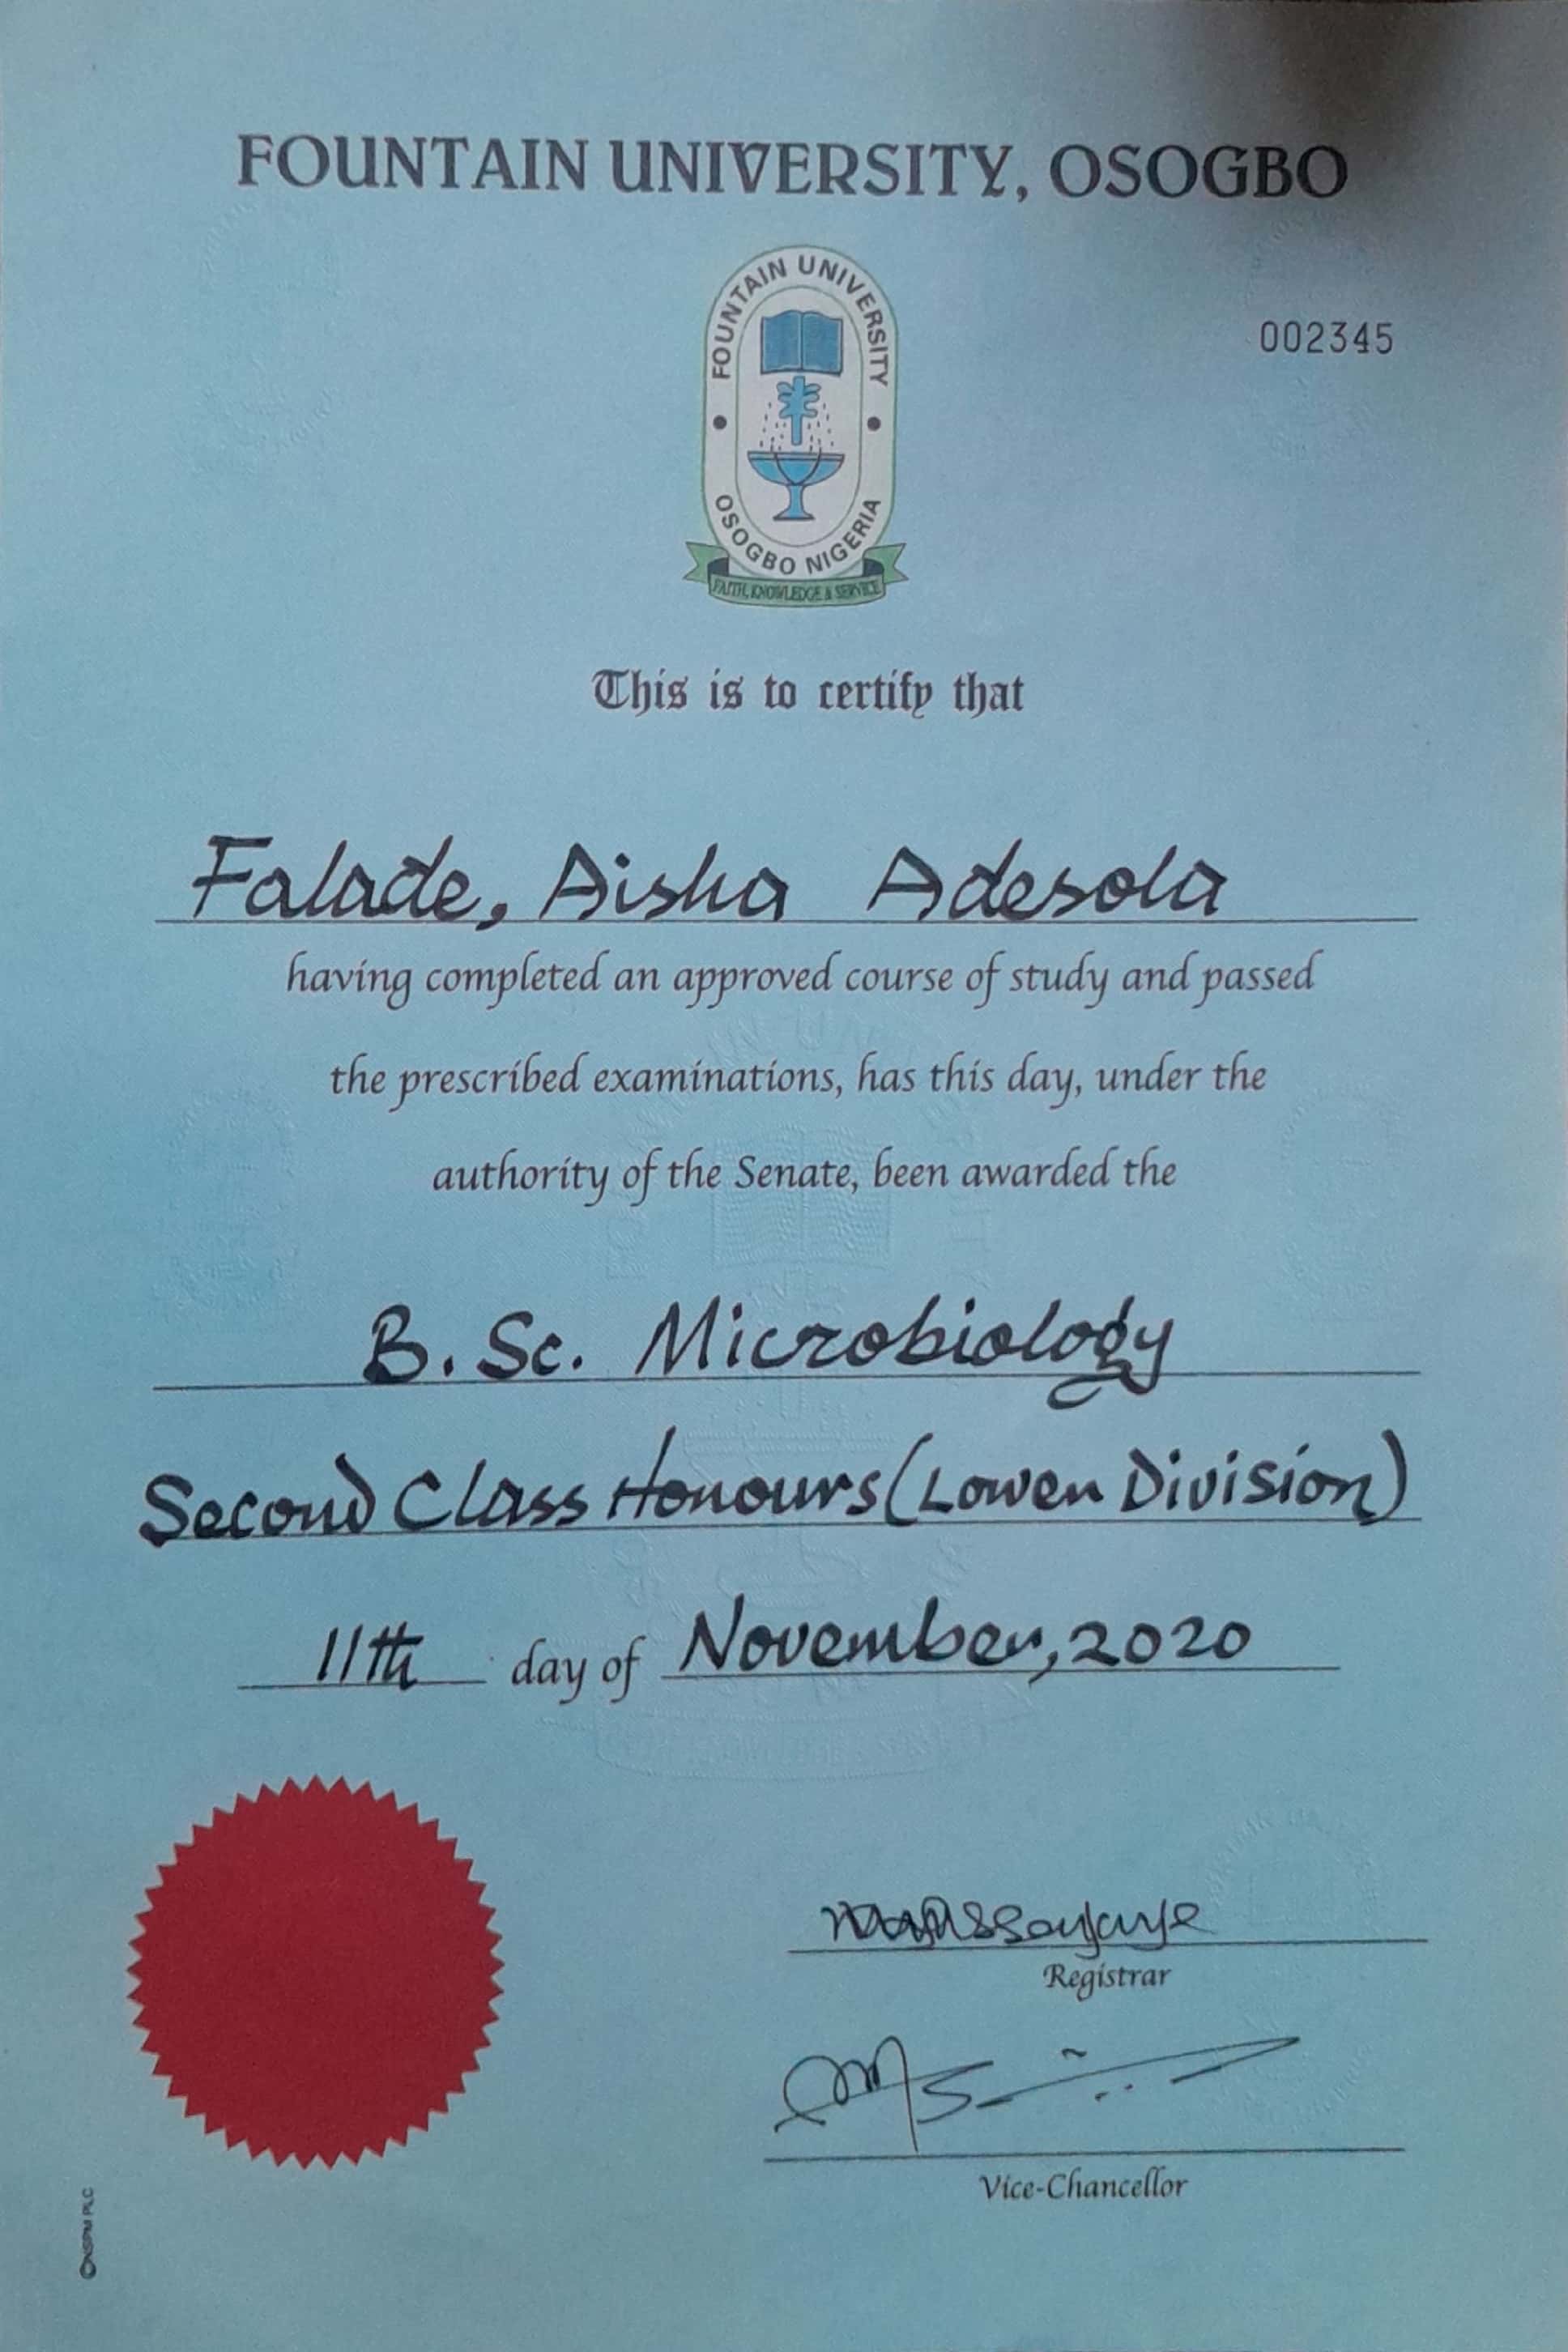 FOUNTAIN UNIVERSITY, OSOGBO
FOUNTAIN UNIVERSITY
OSOGBO NIGERIA
FAITH, KNOWLEDGE & SERVICE
002345
This is to certify that
Falade, Aisha Adesola
having completed an approved course of study and passed
the prescribed examinations, has this day, under the
authority of the Senate, been awarded the
B. Sc. Microbiology
Second Class Honours (Lower Division)
11th day of November, 2020
Registrar
Vice-Chancellor
©NSPM PLC